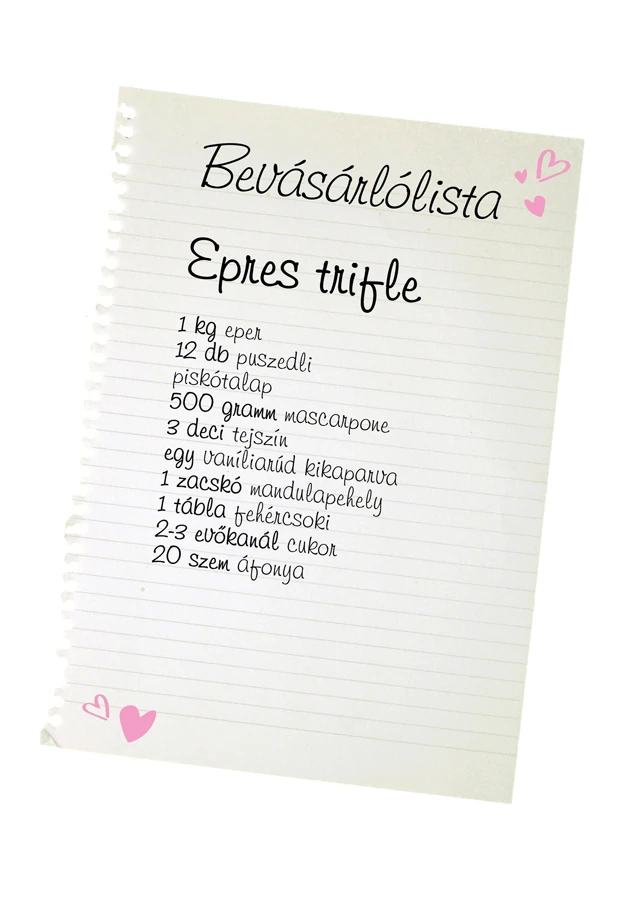 Bevásárlólista
Epres trifle
1 kg eper
12 db puszedli
piskótalap
500 gramm mascarpone
3 deci tejszín
egy vaníliarúd kikaparva
1 zacskó mandulapehely
1 tábla fehércsoki
2-3 evőkanál cukor
20 szem áfonya